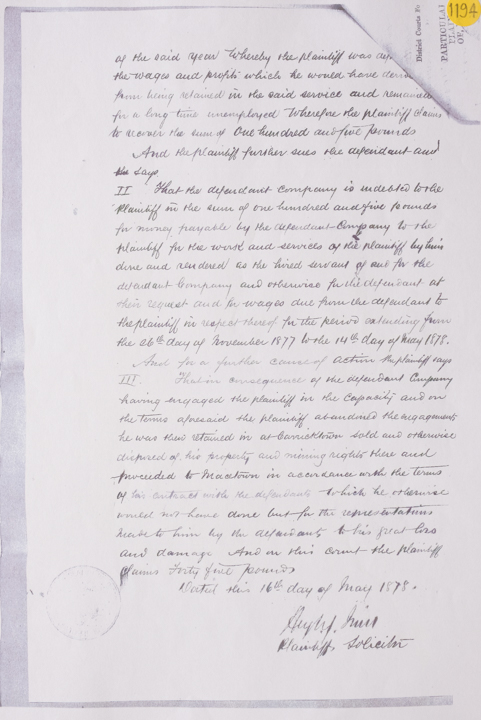 1194
District Courts
PARTICULAR
of the said year Whereby the plaintiff was
the wages and profits which he would have
from being retained in the said service and remained
for a long time unemployed Wherefore the plaintiff claims
to recover the sum of One hundred and five pounds
And the plaintiff further sues the defendant and
he says
II That the defendant Company is indebted to the
plaintiff in the sum of one hundred and five pounds
for money payable by the defendant Company to the
plaintiff for the work and services of the plaintiff by him
done and rendered as the hired servant of and for the
defendant Company and otherwise for the defendant at
their request and for wages due from the defendant to
the plaintiff in respect thereof for the period extending from
the 26th day of November 1877 to the 14th day of May 1878.
And for a further cause of action the plaintiff says
III. That in consequence of the defendant Company
having engaged the plaintiff in the capacity and on
the terms aforesaid the plaintiff abandoned the engagement
he was then retained in at Carricktown sold and otherwise
disposed of his property and mining rights there and
proceeded to Macetown in accordance with the terms
of his contract with the defendants which he otherwise
would not have done but for the representations
made to him by the defendants to his great loss
and damage And on this count the plaintiff
claims Forty five pounds
Dated this 16th day of May 1878.
Plaintiffs Solicitor